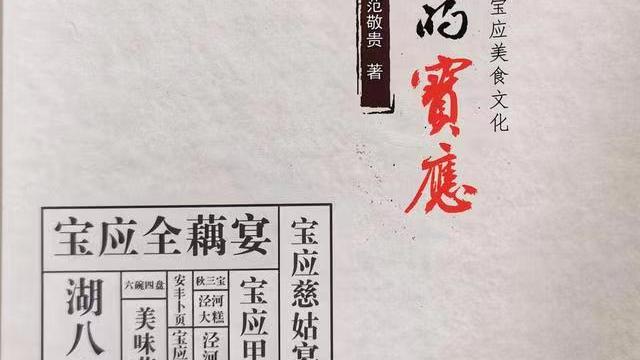 宝应美食文化
的寶應
范敬贵 著
宝应全藕宴
宝应慈姑宴
湖八
六碗四盘
美味
安丰卜页
宝应
秋三宝
泾河大糕
泾河
宝应